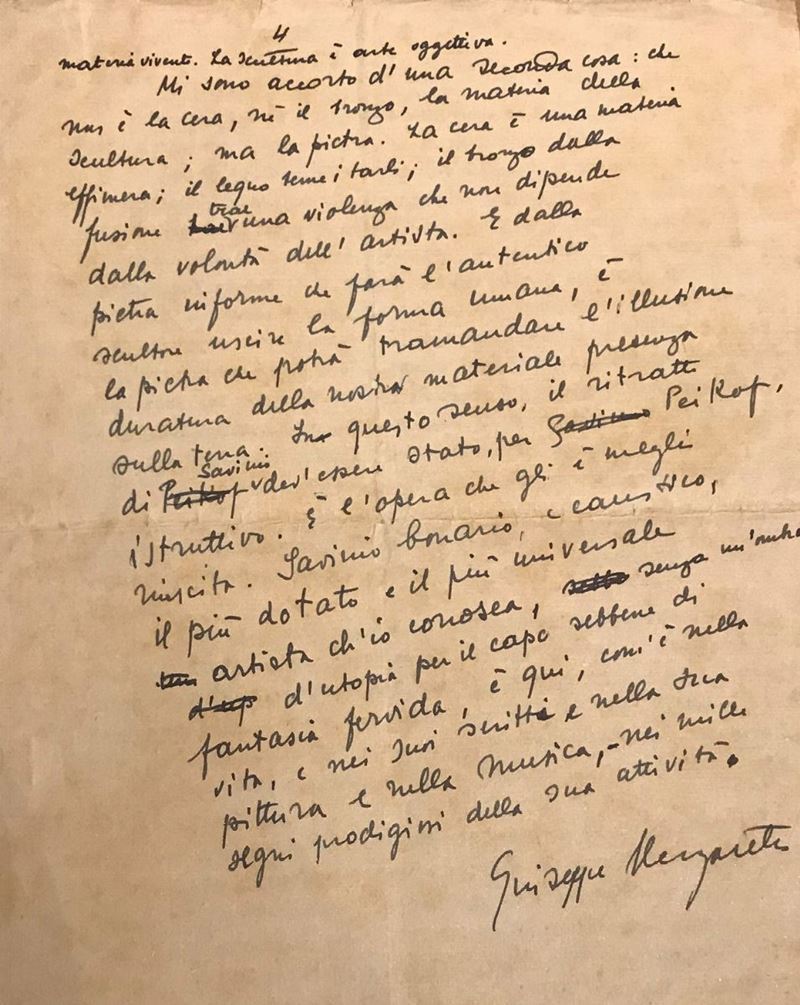 4
materia vivente. La scultura è arte oggettiva.
Mi sono accorto d'una seconda cosa: che
non è la cera, nè il bronzo, la materia della
scultura; ma la pietra. La cera è una materia
effimera; il legno teme i tarli; il bronzo dalla
fusione trae una violenza che non dipende
dalla volontà dell'artista. E dalla
pietra informe che farà l'autentico
scultore uscire la forma umana, è
la pietra che potrà tramandare l'illusione
duratura della nostra materiale presenza
sulla terra. In questo senso, il ritratto
di Savinio dev'essere stato, per Peikof,
istruttivo. È l'opera che gli è meglio
riuscita. Savinio bonario, e caustico,
il più dotato e il più universale
artista ch'io conosca, senza un'ombra
d'utopia per il capo sebbene di
fantasia fervida, è qui, com'è nella
vita, e nei suoi scritti e nella sua
pittura e nella musica, - nei mille
segni prodigiosi della sua attività.
Giuseppe Marzaretti